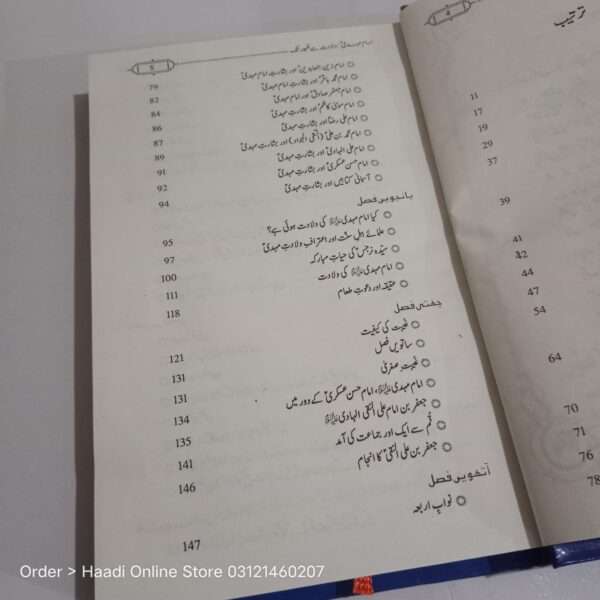 4
ترتیب
11
17
19
29
37
39
41
42
44
47
54
64
70
71
76
78
امام مہدیؑ ولادت سے ظہور تک
5
امام زین العابدینؑ اور بشارتِ امام مہدیؑ 79
امام محمد باقرؑ اور بشارتِ امام مہدیؑ 82
امام جعفر صادقؑ اور امام مہدیؑ 84
امام موسیٰ کاظمؑ اور بشارتِ مہدیؑ 86
امام علی رضاؑ اور بشارتِ مہدیؑ 87
امام محمد بن علیؑ (التقی الجواد) اور بشارتِ مہدیؑ 89
امام علی الہادیؑ اور بشارتِ مہدیؑ 91
امام حسن عسکریؑ اور بشارتِ مہدیؑ 92
آسمانی کتابیں اور بشارتِ مہدیؑ 94
پانچویں فصل
کیا امام مہدی علیہ السلام کی ولادت ہوئی ہے؟ 95
علمائے اہلِ سنّت اور اعترافِ ولادتِ مہدیؑ 97
سیّدہ نرجسؑ کی حیاتِ مبارکہ 100
امام مہدی علیہ السلام کی ولادت 111
عقیقہ اور دعوتِ طعام 118
چھٹی فصل
غیبت کی کیفیت 121
ساتویں فصل 131
غیبتِ صغریٰ 131
امام مہدی علیہ السلام، امام حسن عسکریؑ کے دور میں 134
جعفر بن امام علی النقی الہادی علیہ السلام 135
قُم سے ایک اور جماعت کی آمد 141
جعفر بن علی النقیؑ کا انجام 146
آٹھویں فصل
نوابِ اربعہ 147
Order > Haadi Online Store 03121460207